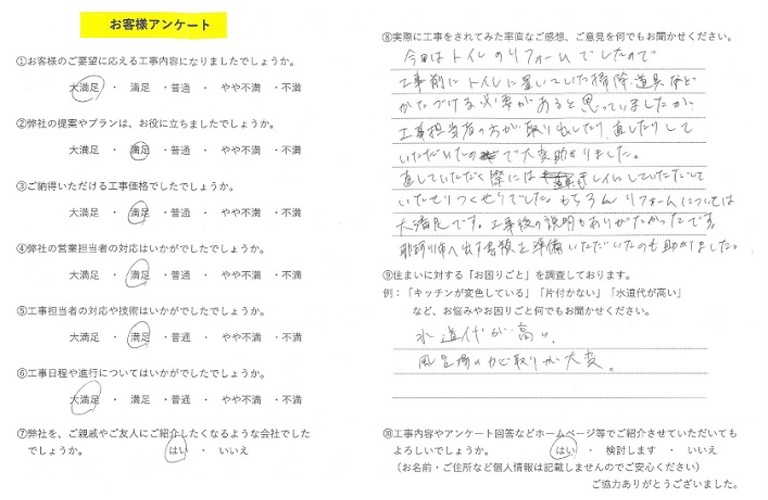 お客様アンケート
①お客様のご要望に応える工事内容になりましたでしょうか。
大満足 ・ 満足 ・普通 ・ やや不満 ・不満
②弊社の提案やプランは、お役に立ちましたでしょうか。
大満足 ・ 満足 ・普通 ・ やや不満 ・不満
③ご納得いただける工事価格でしたでしょうか。
大満足 ・ 満足 ・普通 ・ やや不満 ・不満
④弊社の営業担当者の対応はいかがでしたでしょうか。
大満足 ・ 満足 ・普通 ・ やや不満 ・不満
⑤工事担当者の対応や技術はいかがでしたでしょうか。
大満足 ・ 満足 ・普通 ・ やや不満 ・不満
⑥工事日程や進行についてはいかがでしたでしょうか。
大満足 ・ 満足 ・普通 ・ やや不満 ・不満
⑦弊社を、ご親戚やご友人にご紹介したくなるような会社でした
でしょうか。 はい ・ いいえ
⑧実際に工事をされてみた率直なご感想、ご意見を何でもお聞かせください。
今回はトイレのリフォームでしたので
工事前にトイレに置いていた掃除道具など
かたづける必要があると思っていましたが、
工事担当者の方が取り出したり、直したりして
いただいたので大変助かりました。
直していただく際には キレイにしていただいて
いたせりつくせりでした。もちろんリフォームについては
大満足です。工事後の説明もありがたかったです。
那珂川市へ出す書類を準備いただいたのも助かりました。
⑨住まいに対する「お困りごと」を調査しております。
例：「キッチンが変色している」「片付かない」「水道代が高い」
など、お悩みやお困りごと何でもお聞かせください。
水道代が高い、
風呂場のカビ取りが大変。
⑩工事内容やアンケート回答などホームページ等でご紹介させていただいても
よろしいでしょうか。 はい ・ 検討します ・ いいえ
（お名前・ご住所など個人情報は記載しませんのでご安心ください）
ご協力ありがとうございました。